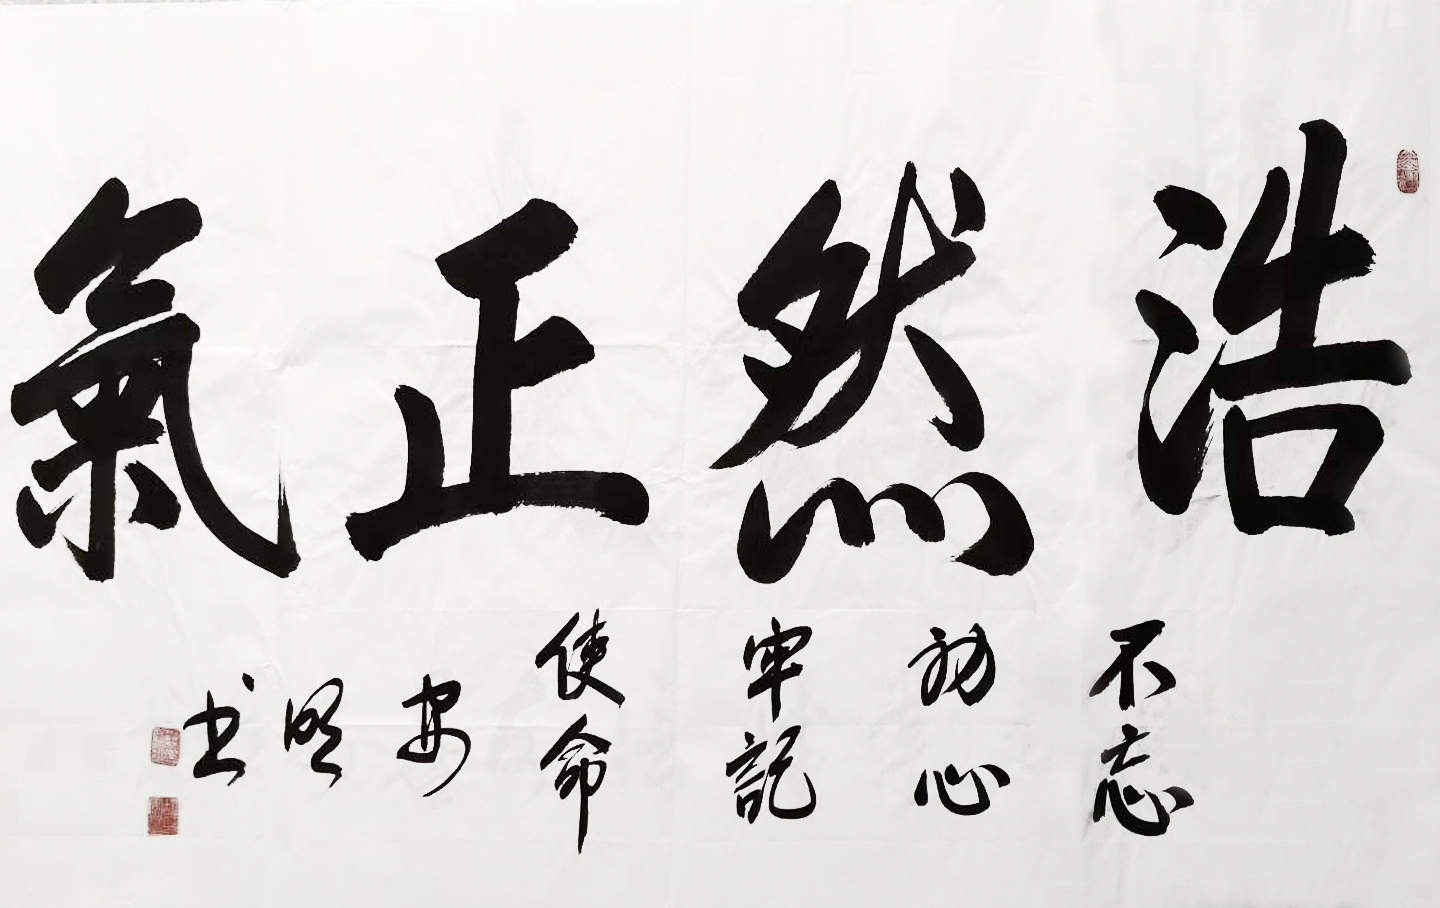 浩然正氣
不忘
初心
牢記
使命
安
明
书